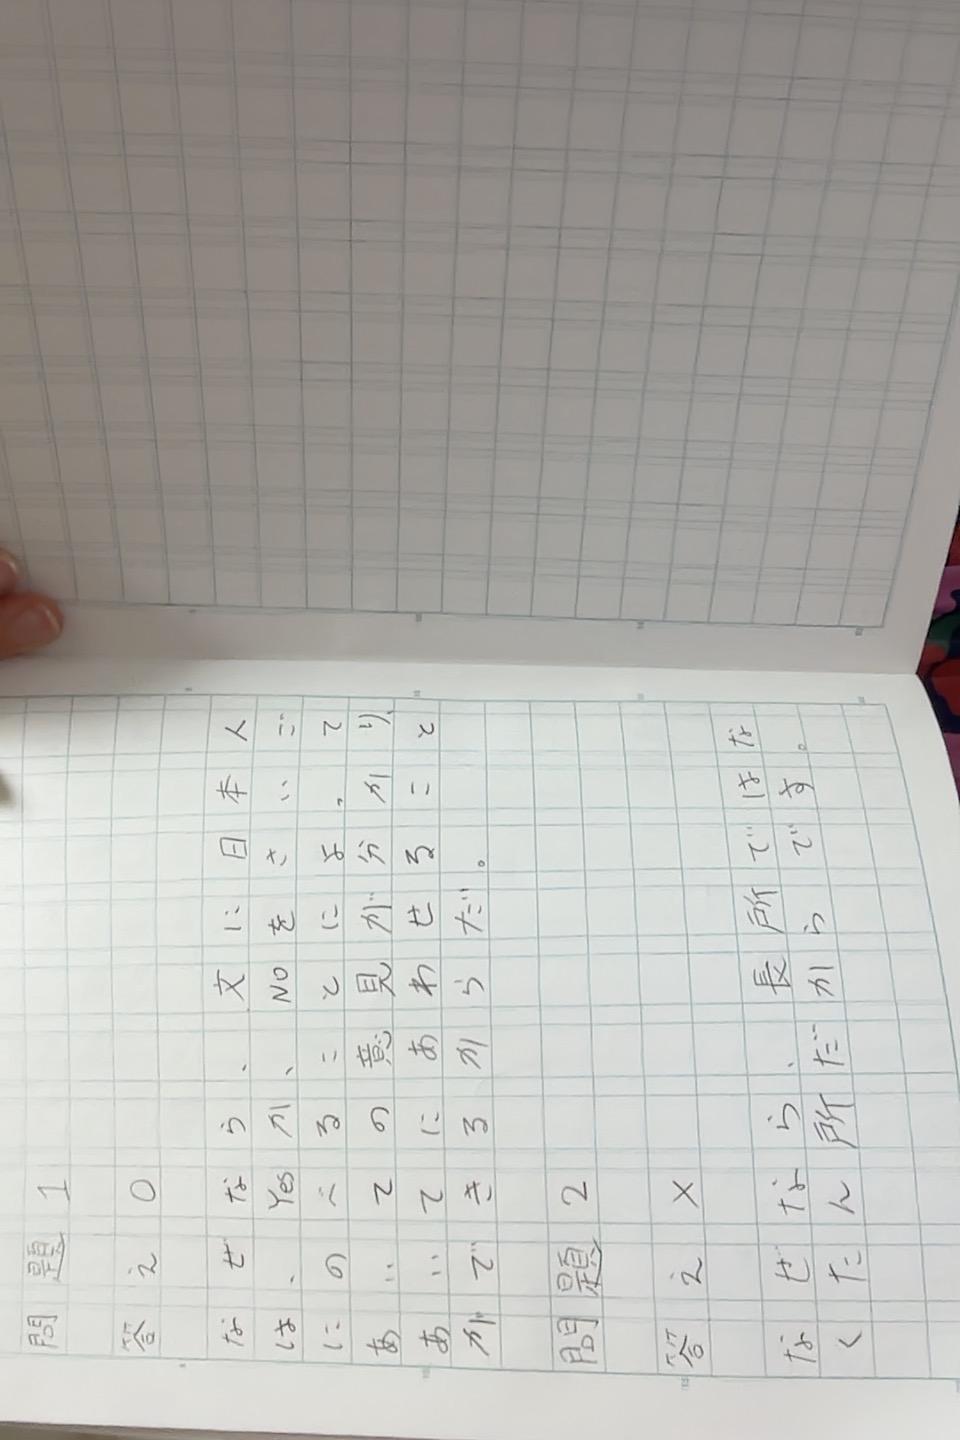 問題1
答え○
なぜなら、文に日本人
は、Yesか、NOをさいご
にのべることによって
あいての意見が分かり、
あいてにあわせること
ができるからだ。
問題2
答え×
なぜなら、長所ではな
くたん所だからです。